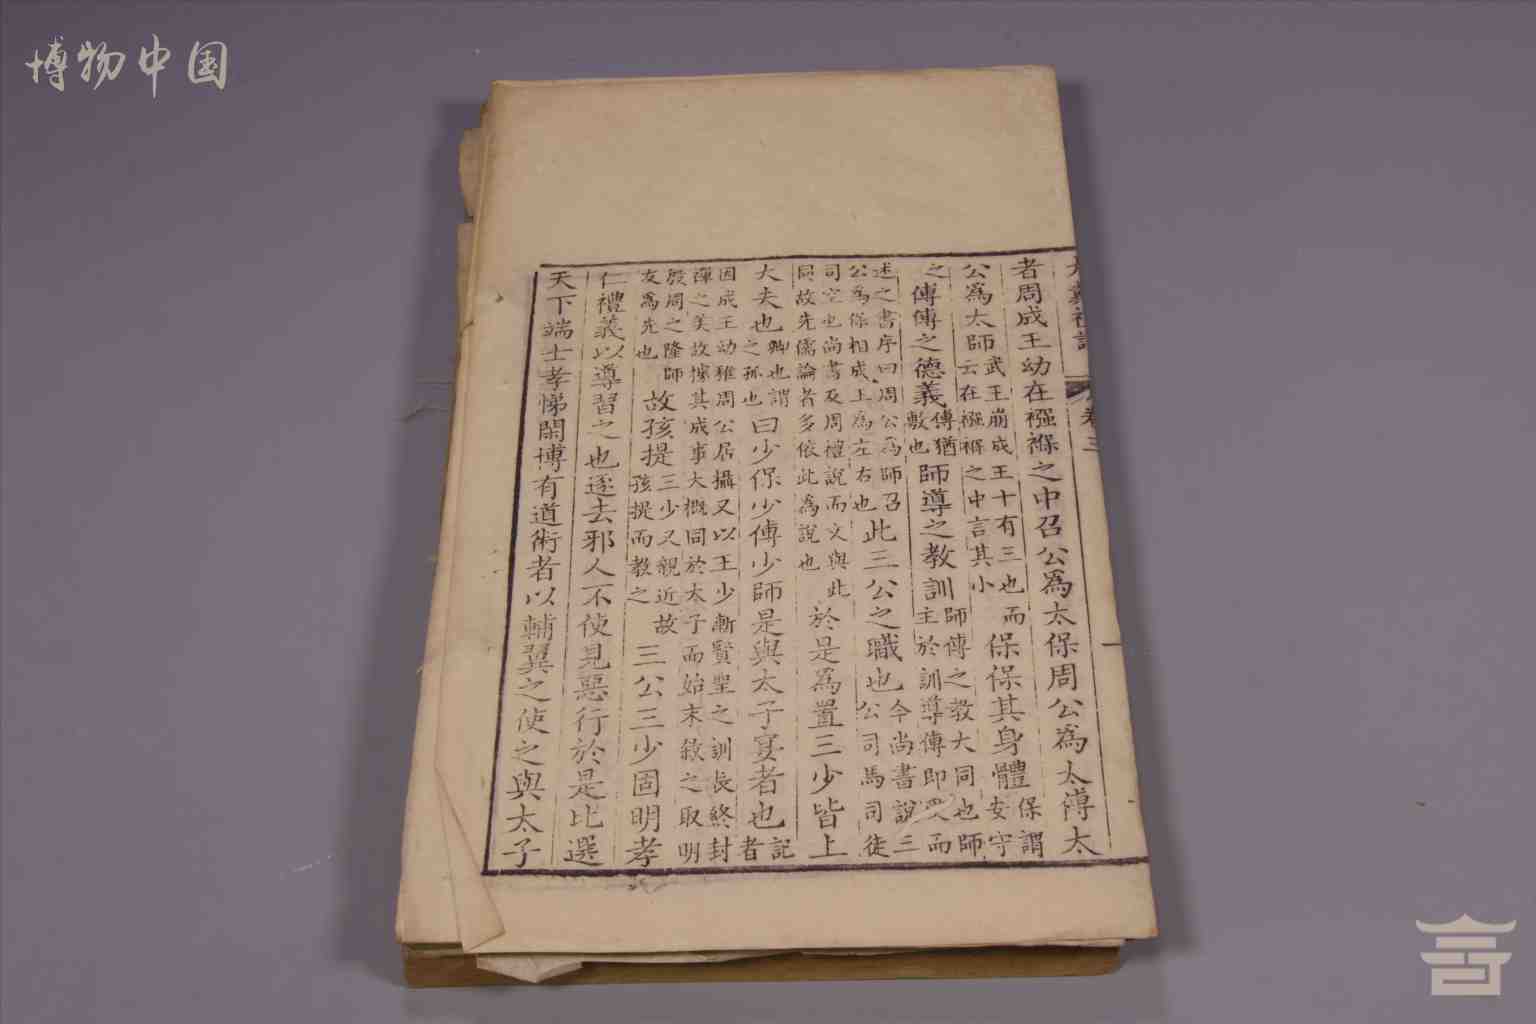 博物中国
大戴禮記 卷三
者周成王幼在襁褓之中召公爲太保周公爲太傅太
公爲太師武王崩成王十有三也而云在襁褓之中言其小保保其身體保謂安守
之傅傅之德義傅猶敷也師導之教訓師傅之教大同也師主於訓導傅即人而
述之書序曰周公為師召公為保相成王為左右也此三公之職也今尚書說三公司馬司徒
司空也尚書及周禮說而文與此同故先儒論者多依此為說也於是爲置三少皆上
大夫也卿也謂之孤也曰少保少傅少師是與太子宴者也記者
因成王幼稚周公居攝又以王少漸賢聖之訓長終封禪之美故據其成事大概同於太子而始末敘之取明
殷周之隆師友爲先也故孩提三少又親近故孩提而教之三公三少固明孝
仁禮義以導習之也逐去邪人不使見惡行於是比選
天下端士孝悌閑博有道術者以輔翼之使之與太子